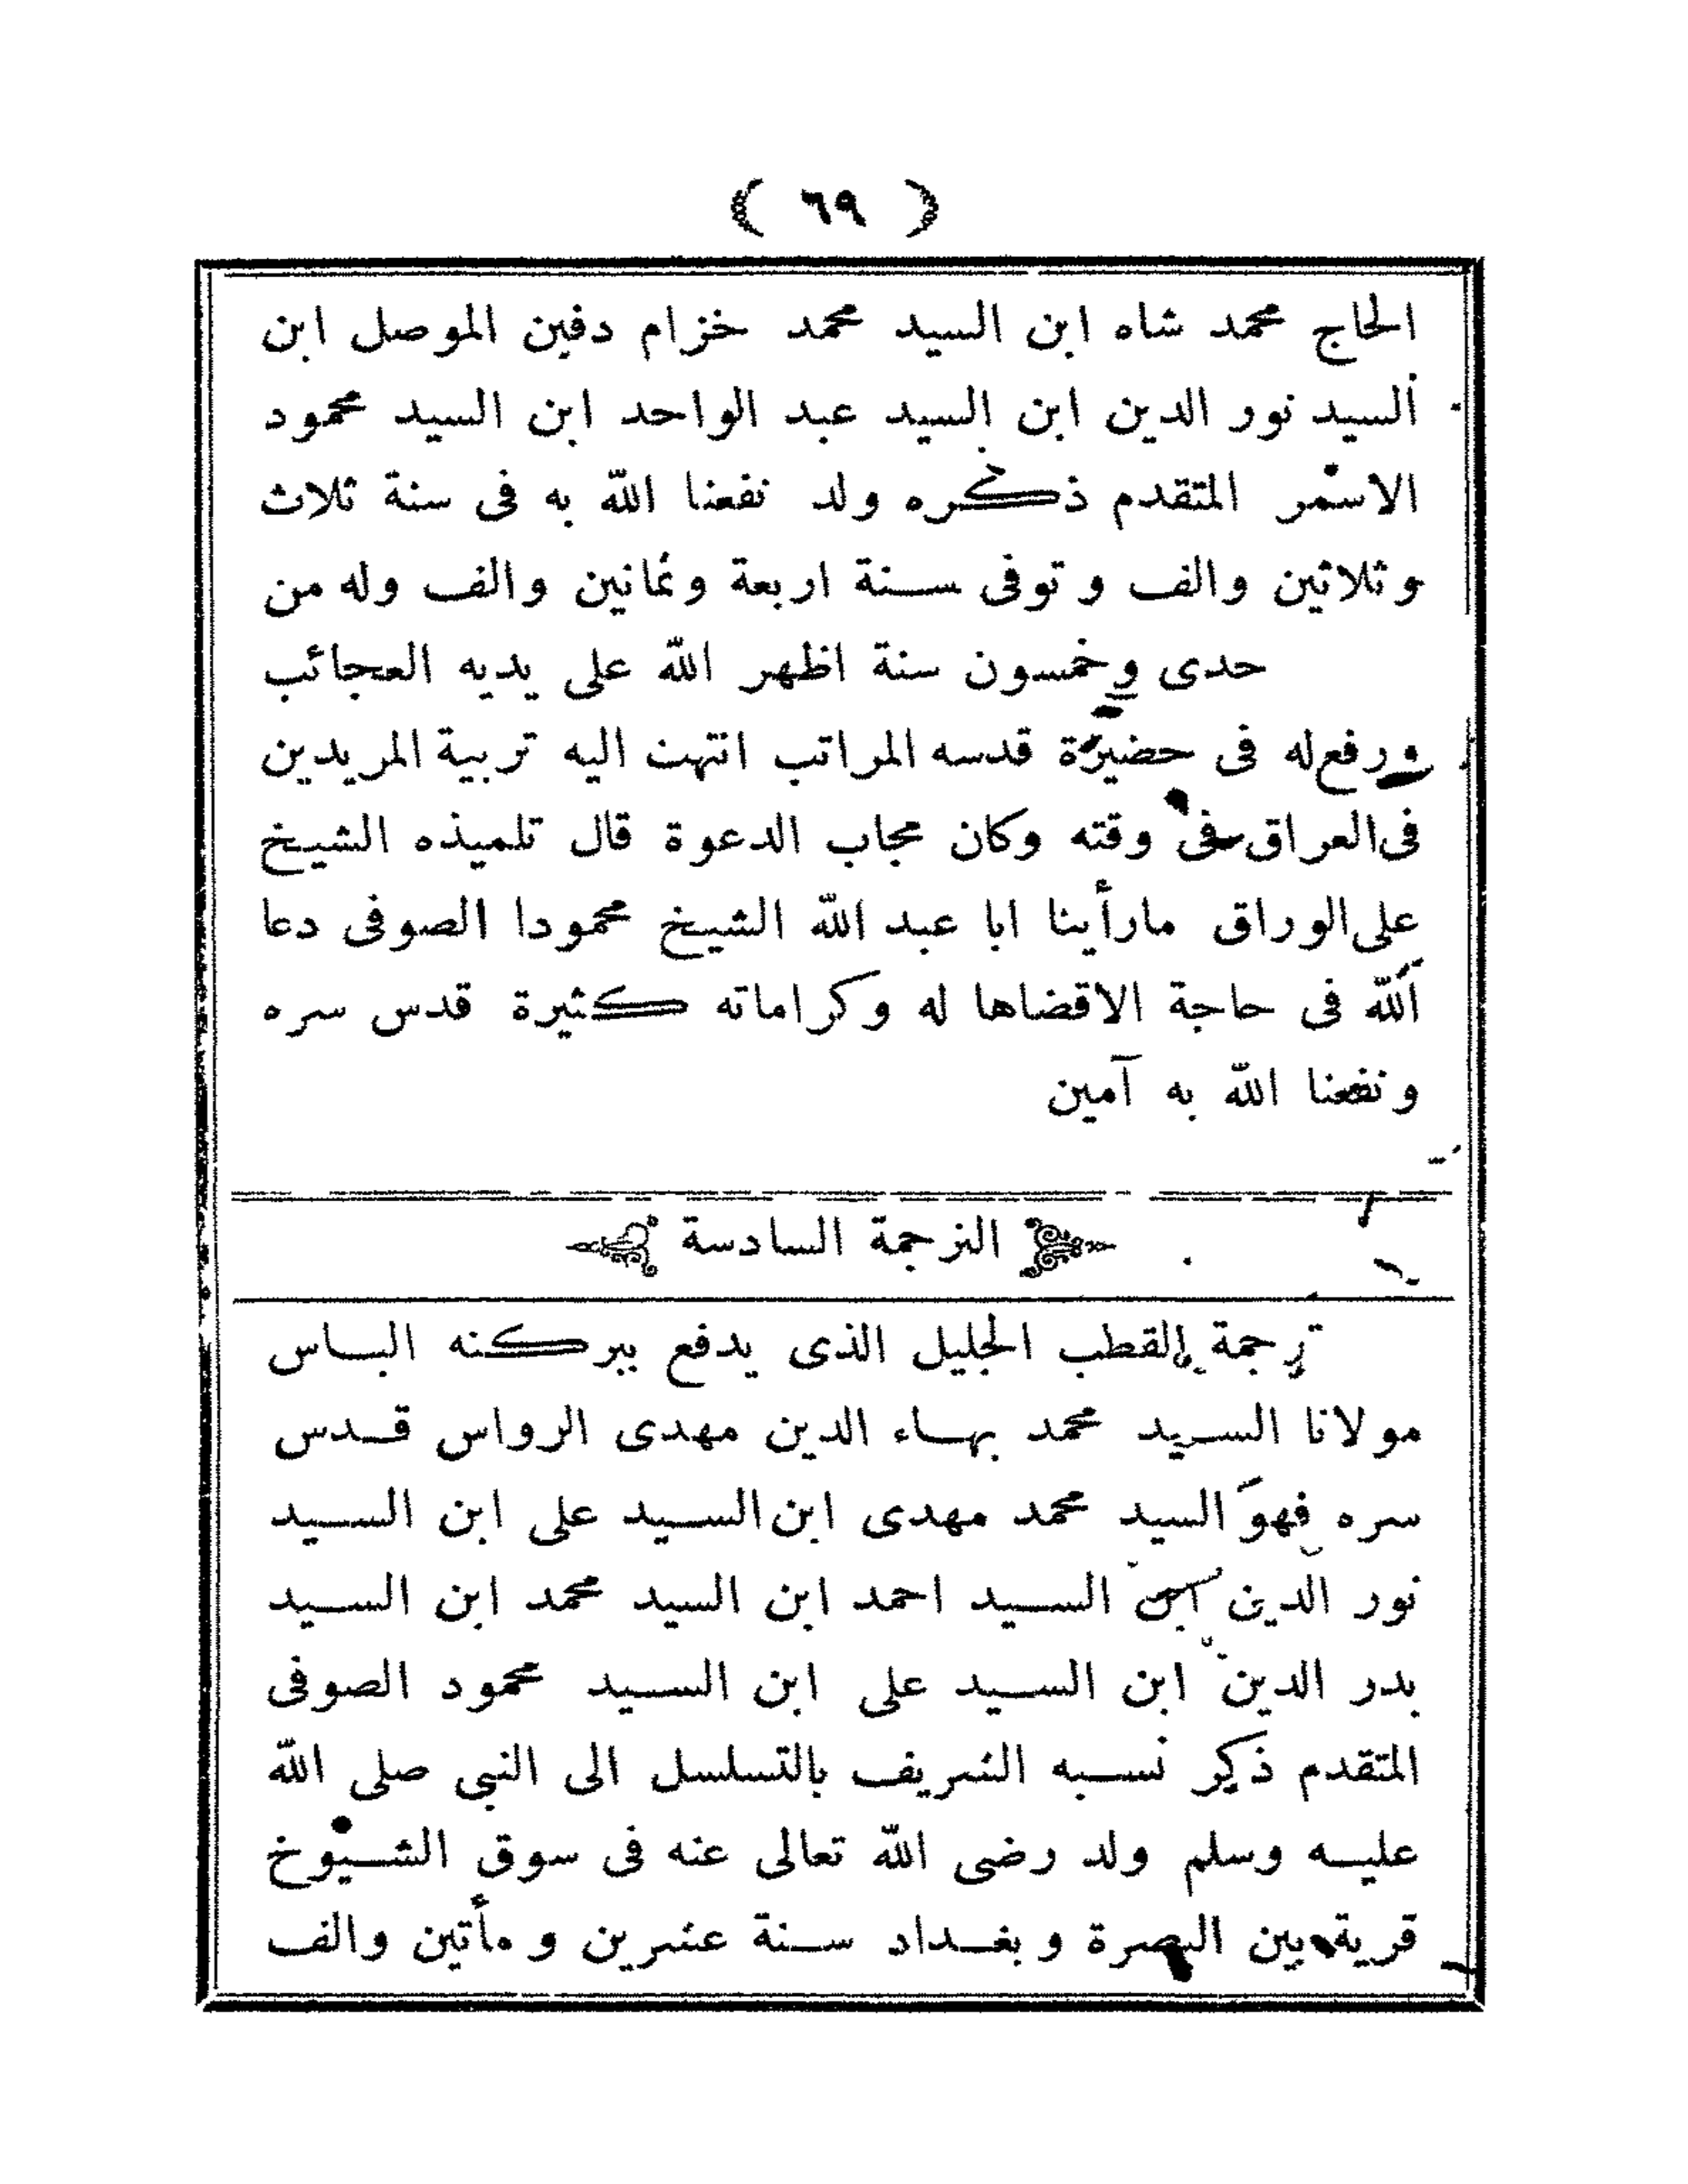 ( ٦٩ )
الحاج محمد شاه ابن السيد محمد خزام دفين الموصل ابن
السيد نور الدين ابن السيد عبد الواحد ابن السيد محمود
الاسمر المتقدم ذكره ولد نفعنا الله به فى سنة ثلاث
وثلاثين والف وتوفى سنة اربعة وثمانين والف وله من
حدى وخمسون سنة اظهر الله على يديه العجائب
ورفع له فى حضيرة قدسه المراتب انتهت اليه تربية المريدين
فى العراق فى وقته وكان مجاب الدعوة قال تلميذه الشيخ
على الوراق مارأينا ابا عبد الله الشيخ محمودا الصوفى دعا
الله فى حاجة الاقضاها له وكراماته كثيرة قدس سره
ونفعنا الله به آمين
الترجمة السادسة
ترجمة القطب الجليل الذى يدفع ببركته الباس
مولانا السيد محمد بهاء الدين مهدى الرواس قدس
سره فهو السيد محمد مهدى ابن السيد على ابن السيد
نور الدين ابن السيد احمد ابن السيد محمد ابن السيد
بدر الدين ابن السيد على ابن السيد محمود الصوفى
المتقدم ذكر نسبه الشريف بالتسلسل الى النبى صلى الله
عليه وسلم ولد رضى الله تعالى عنه فى سوق الشيوخ
قرية بين البصرة وبغداد سنة عشرين ومأتين والف